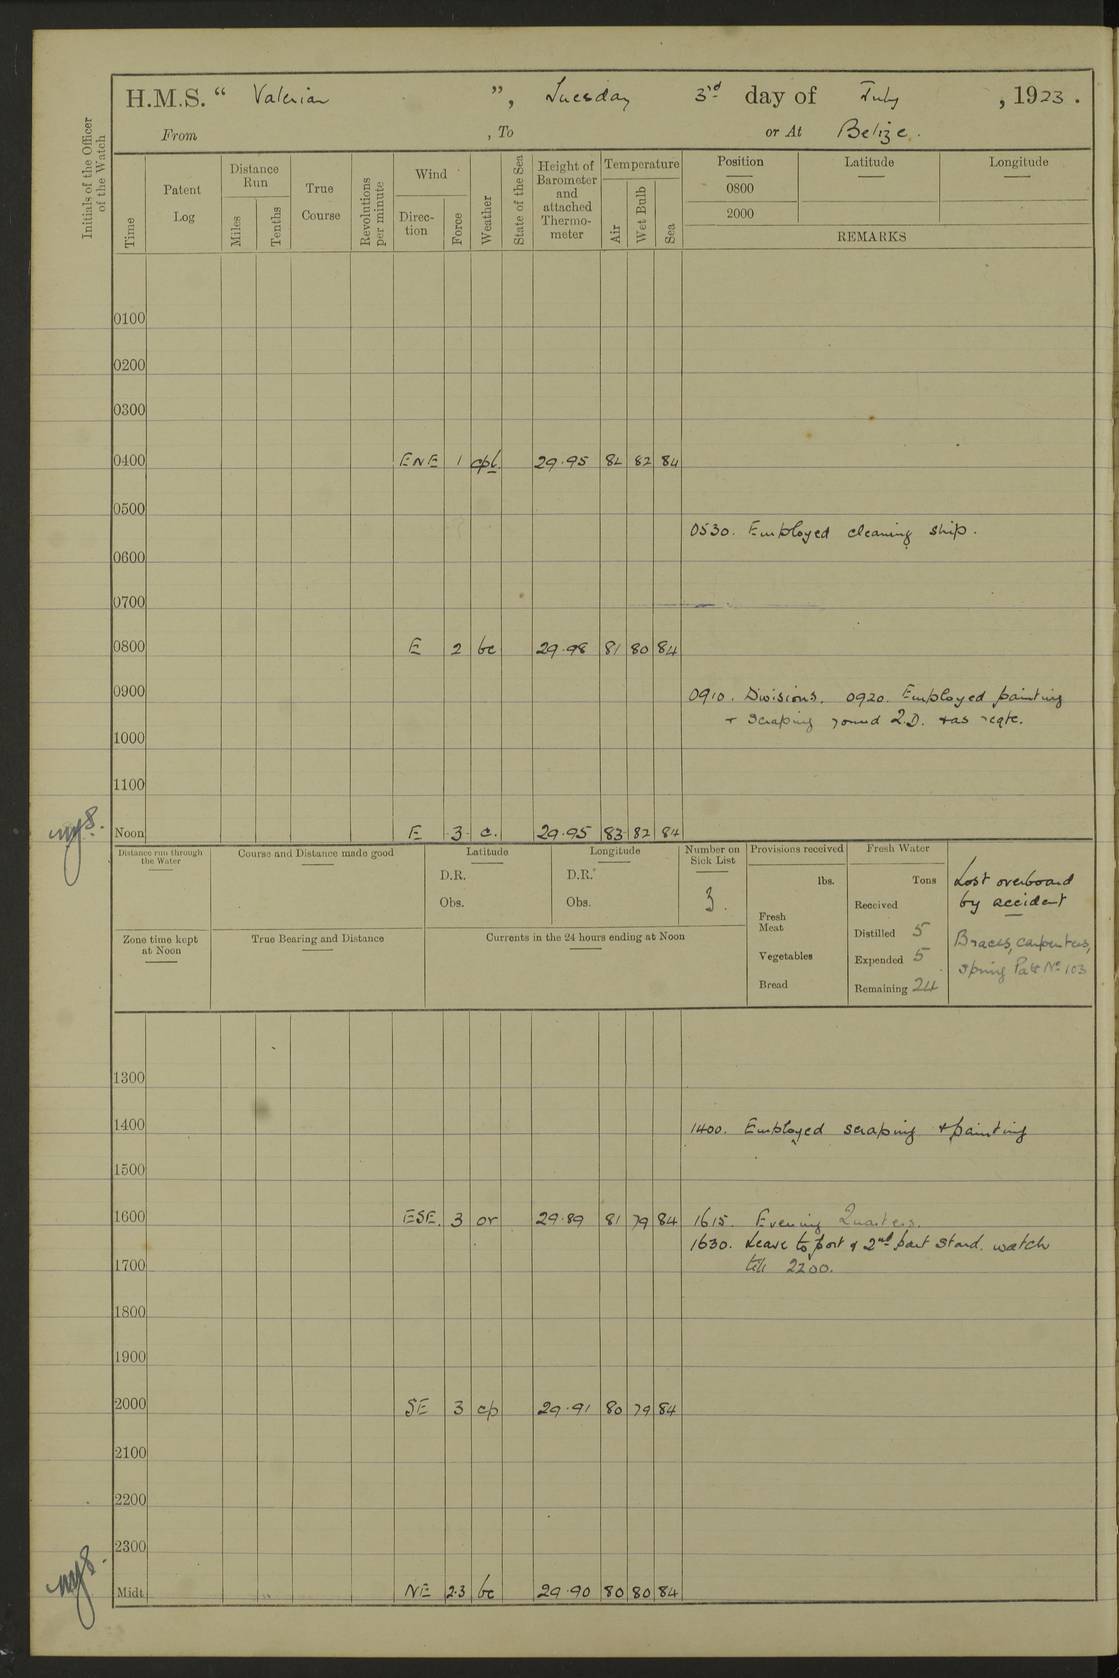 H.M.S. “ Valerian ”, Tuesday 3rd day of July , 1923 .
From , To or At Belize .
Initials of the Officer of the Watch
Time Patent Log Distance Run Miles Tenths True Course Revolutions per minute Wind Direc- tion Force Weather State of the Sea Height of Barometer and attached Thermo- meter Temperature Air Wet Bulb Sea Position Latitude Longitude
0800
2000
REMARKS
0100
0200
0300
0400 ENE 1 29.95 82 84
0500
0530. Employed cleaning ship.
0600
0700
0800 E 2 bc 29.98 81 80 84
0900 0910. Divisions. 0920. Employed painting
+ scraping round Q.D. + as reqte.
1000
1100
Noon E 3 c. 29.95 83 82 84
Distance run through the Water Course and Distance made good Latitude Longitude Number on Sick List Provisions received Fresh Water
D.R. D.R. lbs. Tons Lost overboard
Obs. Obs. 3. Received by accident
Fresh Meat Distilled 5 Braces, carpenters,
Zone time kept at Noon True Bearing and Distance Currents in the 24 hours ending at Noon Vegetables Expended 5 spring Patt No 103
Bread Remaining 24
1300
1400 1400. Employed scraping + painting
1500
1600 ESE. 3 or 29.89 81 79 84 1615. Evening Quarters.
1630. Leave to port & 2nd part Starb. watch
1700 till 2200.
1800
1900
2000 SE 3 cp 29.91 80 79 84
2100
2200
2300
Midt. NE 2.3 bc 29.90 80 80 84